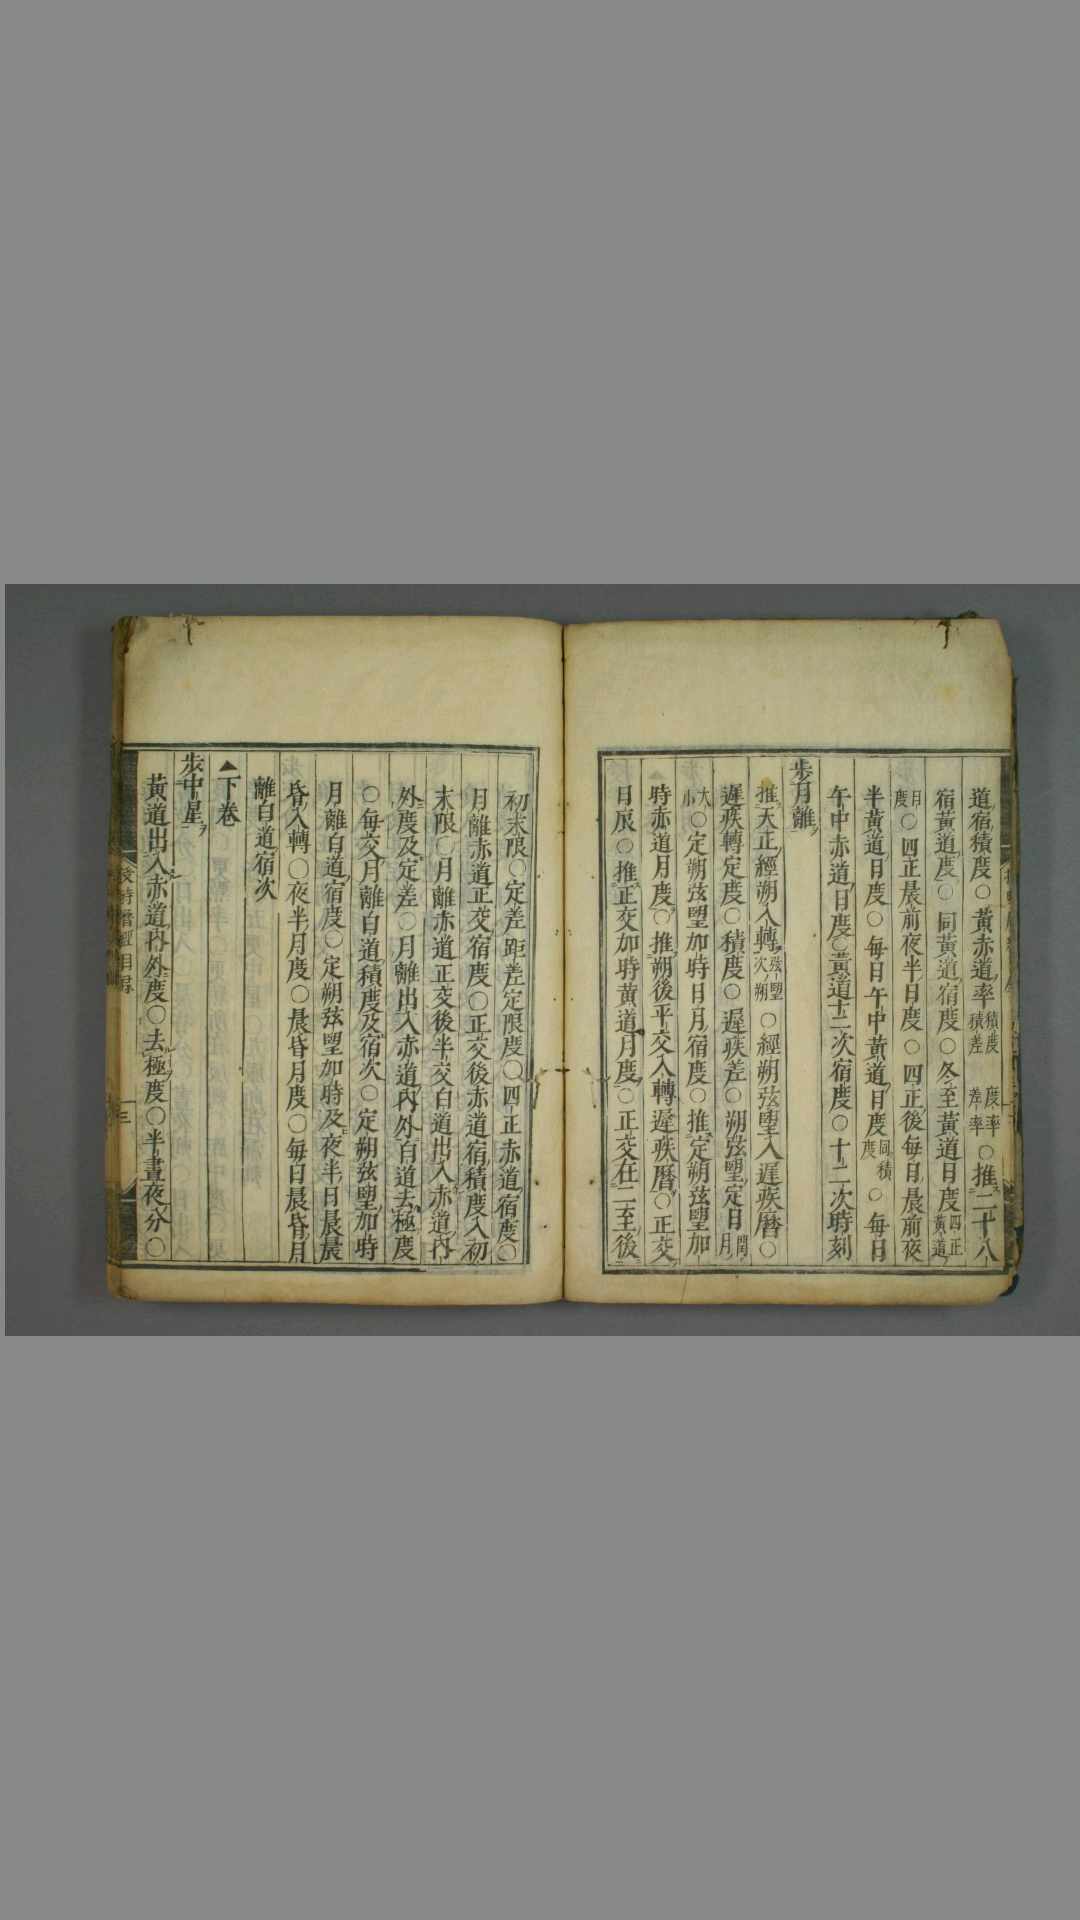 道宿積度○黄赤道率積度積差度率差率○推二十八
宿黄道度○同黄道宿度○冬至黄道日度四正黄道
日度○四正晨前夜半日度○四正後每日晨前夜
半黄道日度○每日午中黄道日度同積度○每日
午中赤道日度○黄道十二次宿度○十二次時刻
步月離
推天正經朔入轉弦望次朔○經朔弦望入遲疾曆○
遲疾轉定度○積度○遲疾差○朔弦望定日閏月
大小○定朔弦望加時日月宿度○推定朔弦望加
時赤道月度○推朔後平交入轉遲疾曆○正交
日辰○推正交加時黄道月度○正交在二至後
初末限○定差距差定限度○四正赤道宿度○
月離赤道正交宿度○正交後赤道宿積度入初
末限○月離赤道正交後半交白道出入赤道內
外度及定差○月離出入赤道內外白道去極度
○每交月離白道積度及宿次○定朔弦望加時
月離白道宿度○定朔弦望加時及夜半日晨晨
昏入轉○夜半月度○晨昏月度○每日晨昏月
離白道宿次
▲下卷
步中星
黄道出入赤道內外度○去極度○半晝夜分○
授時曆經目录
三